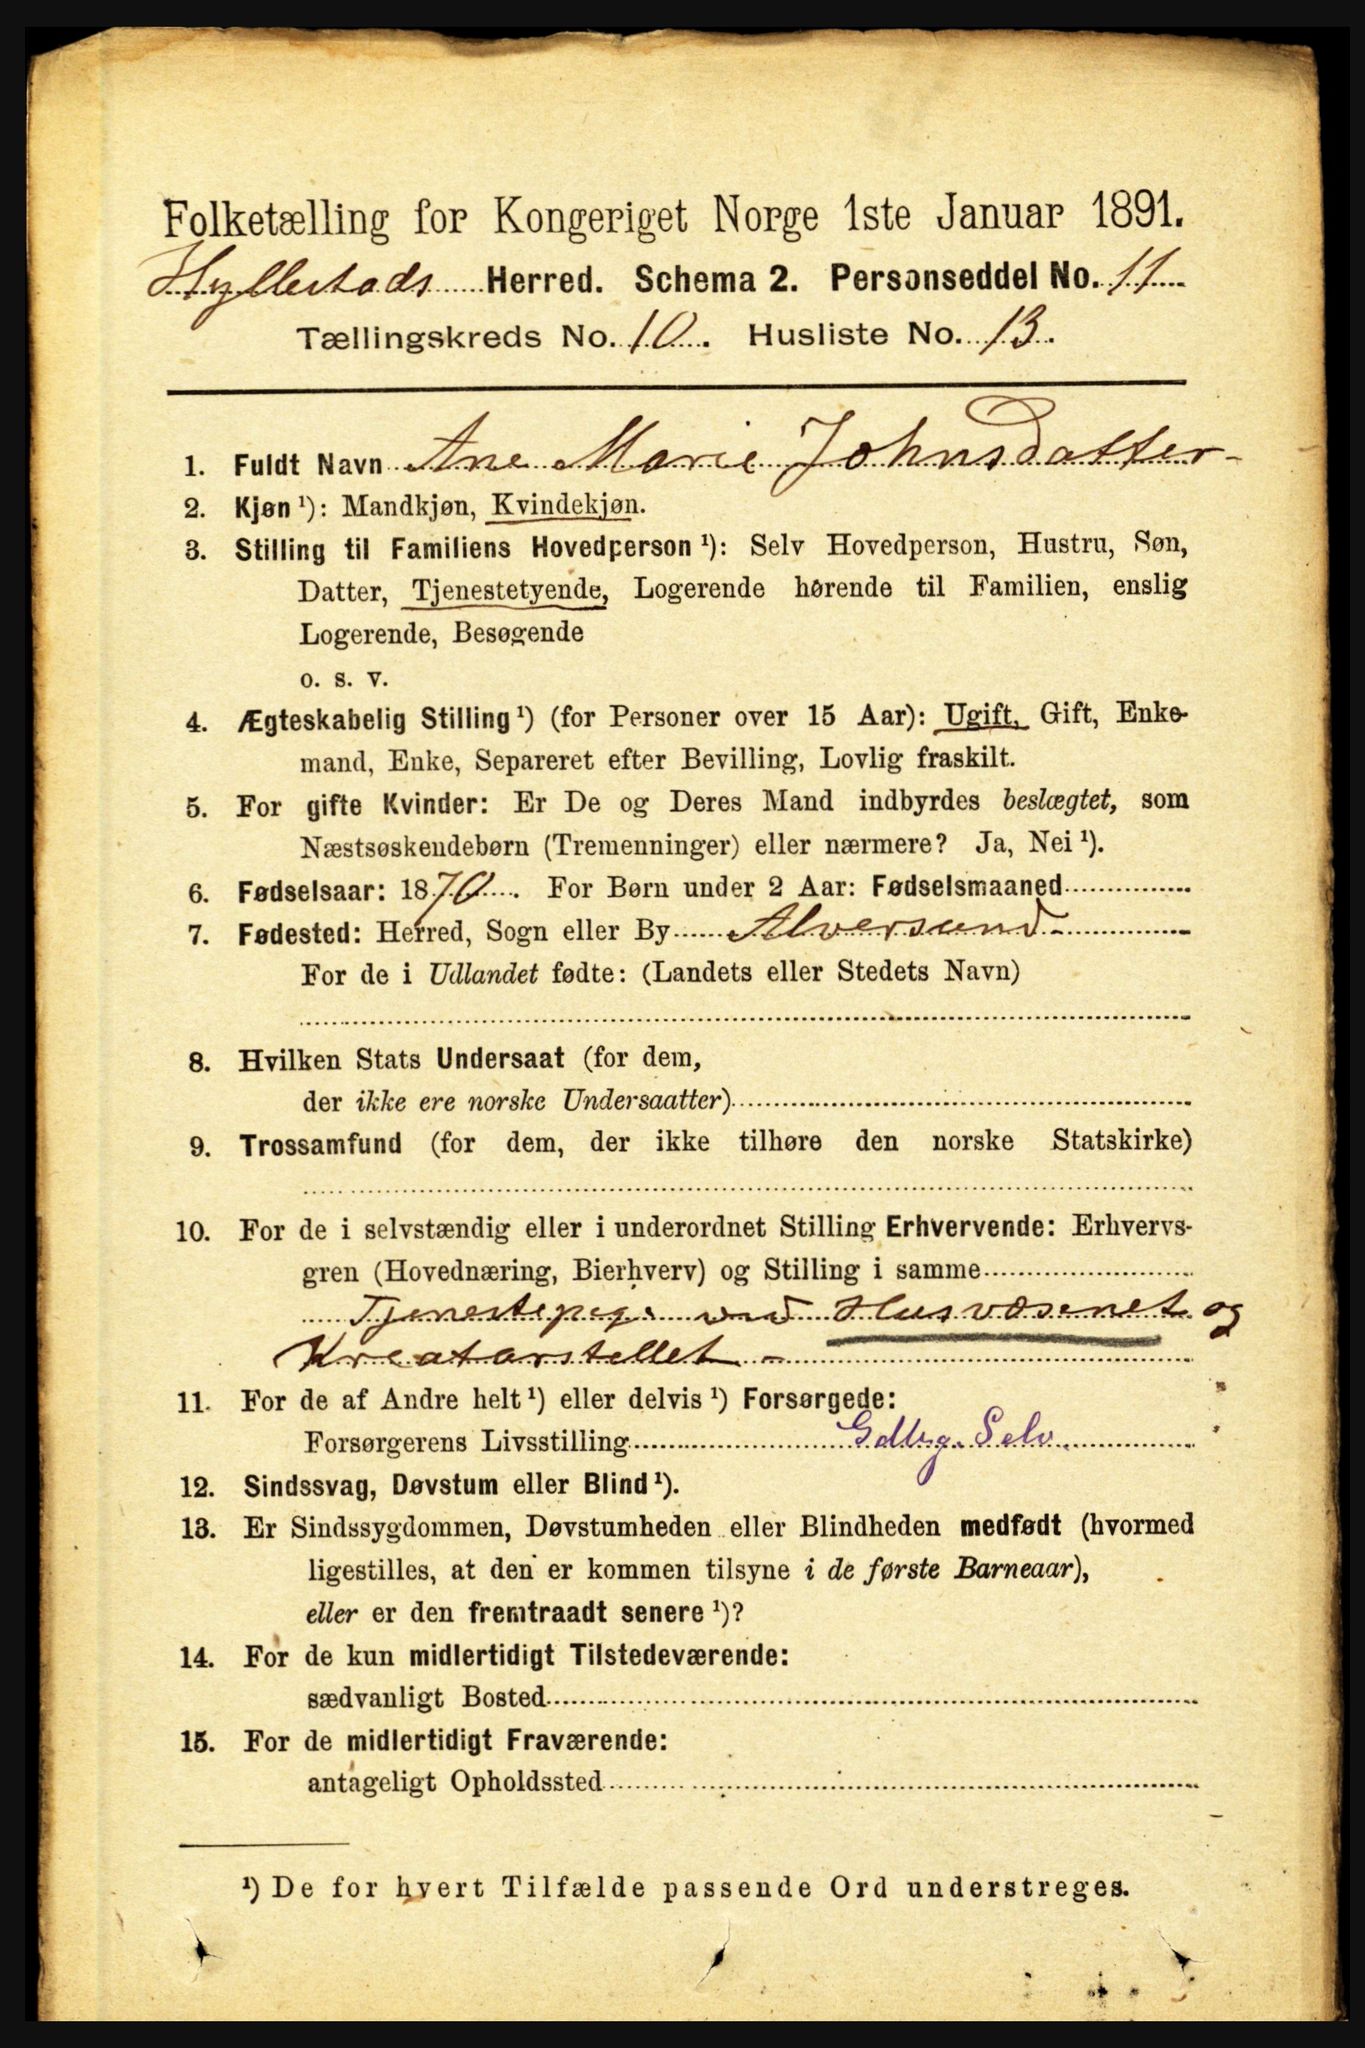 Folketælling for Kongeriget Norge 1ste Januar 1891.
Hyllestads Herred. Schema 2. Personseddel No. 11
Tællingskreds No. 10. Husliste No. 13.
1. Fuldt Navn Ane Marie Johnsdatter
2. Kjøn ¹): Mandkjøn, Kvindekjøn.
3. Stilling til Familiens Hovedperson ¹): Selv Hovedperson, Hustru, Søn,
Datter, Tjenestetyende, Logerende hørende til Familien, enslig
Logerende, Besøgende
o. s. v.
4. Ægteskabelig Stilling ¹) (for Personer over 15 Aar): Ugift, Gift, Enke-
mand, Enke, Separeret efter Bevilling, Lovlig fraskilt.
5. For gifte Kvinder: Er De og Deres Mand indbyrdes beslægtet, som
Næstsøskendebørn (Tremenninger) eller nærmere? Ja, Nei ¹).
6. Fødselsaar: 1870. For Børn under 2 Aar: Fødselsmaaned
7. Fødested: Herred, Sogn eller By Alversund
For de i Udlandet fødte: (Landets eller Stedets Navn)
8. Hvilken Stats Undersaat (for dem,
der ikke ere norske Undersaatter)
9. Trossamfund (for dem, der ikke tilhøre den norske Statskirke)
10. For de i selvstændig eller i underordnet Stilling Erhvervende: Erhvervs-
gren (Hovednæring, Bierhverv) og Stilling i samme
Tjenestepige ved Husvæsenet og
Kreaturstellet
11. For de af Andre helt ¹) eller delvis ¹) Forsørgede:
Forsørgerens Livsstilling Gdbrg. Selv.
12. Sindssvag, Døvstum eller Blind ¹).
13. Er Sindssygdommen, Døvstumheden eller Blindheden medfødt (hvormed
ligestilles, at den er kommen tilsyne i de første Barneaar),
eller er den fremtraadt senere ¹)?
14. For de kun midlertidigt Tilstedeværende:
sædvanligt Bosted
15. For de midlertidigt Fraværende:
antageligt Opholdssted
¹) De for hvert Tilfælde passende Ord understreges.